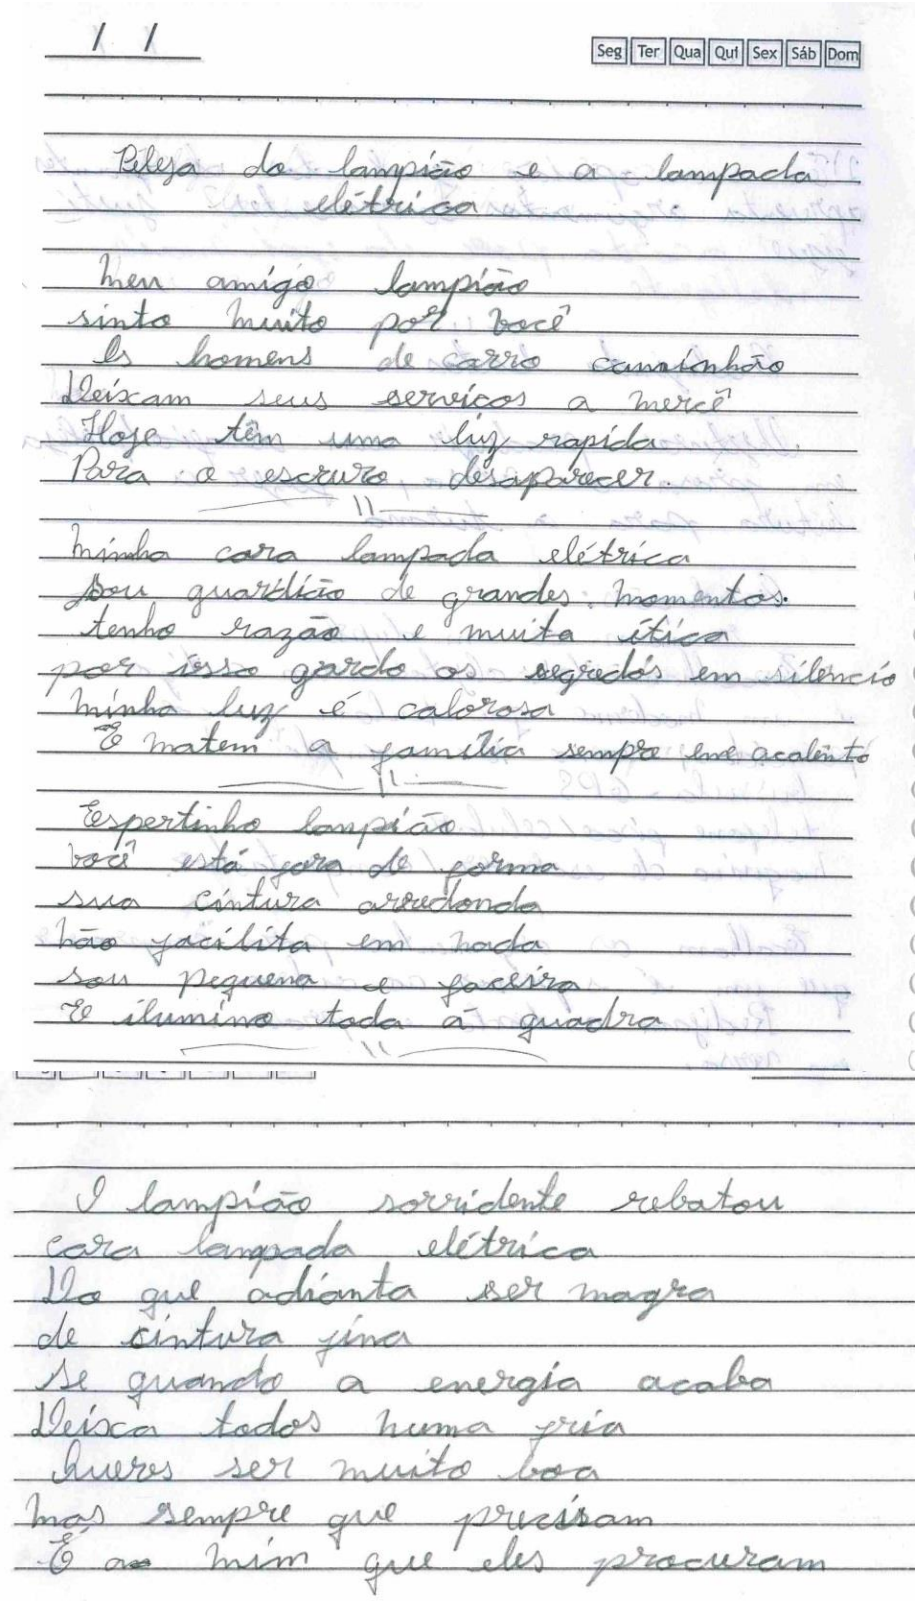 / /
Seg Ter Qua Qui Sex Sáb Dom
Peleja do lampião e a lampada
elétrica.
Meu amigo lampião
sinto muito por você
Os homens de carro caminhão
Deixam seus serviços a mercê
Hoje têm uma luz rapida
Para o escruro desaparecer.
Minha cara lampada elétrica
sou guardião de grandes momentos.
tenho razão e muita ética
por isso gardo os segredos em silêncio
minha luz é calorosa
E matem a família sempre em acalento
Espertinho lampião
você está fora de forma
sua cintura arredonda
não facilita em nada
sou pequena e faceira
E ilumino toda a quadra
O lampião sorridente rebatou
cara lampada elétrica
Do que adianta ser magra
de cintura fina
se quando a energia acaba
Deixa todos numa fria
Queres ser muito boa
mas sempre que precisam
É a mim que eles procuram